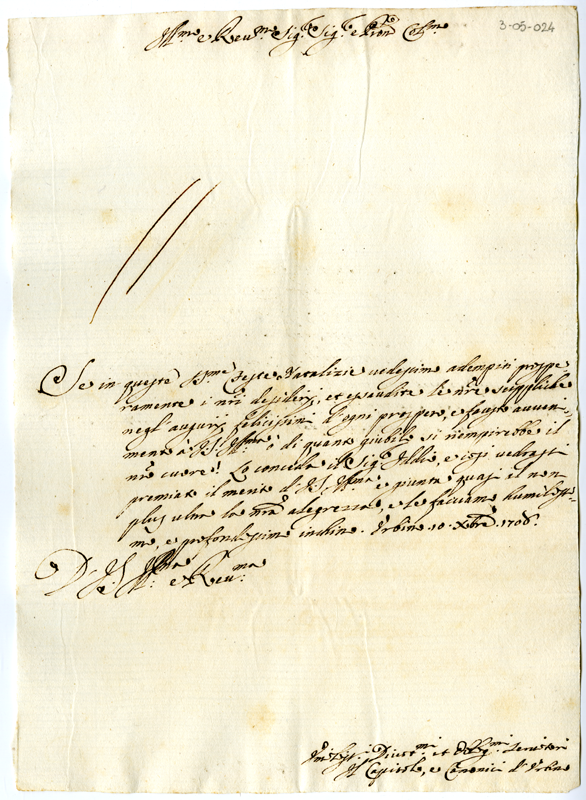 3-05-024
Ill.mo e Reu.mo Sig.re Sig.re e Pron Col.mo
Se in queste SS.me Feste Natalizie uedessimo adempiti prospe
ramente i nri desiderij, et esaudite le nre suppliche
negl'augurij felicissimi d'ogni prospero, e fausto auueni
mento à VS Ill.ma ò di quanto giubilo si riempirebbe il
nro cuore! Lo conceda il Sig.re Iddio, e così uedrassi
premiato il merito di VS Ill.ma e giunta quasi al non
plus ultra la nra alegrezza, e le facciamo humilissi
me, e profondissime inchine. Vrbino 10 Xbre 1706.
Di VS Ill.ma e Reu.ma
Diuot.mi et Obblig.mi Seruitori
Il Capitolo, e Canonici d'Vrbino